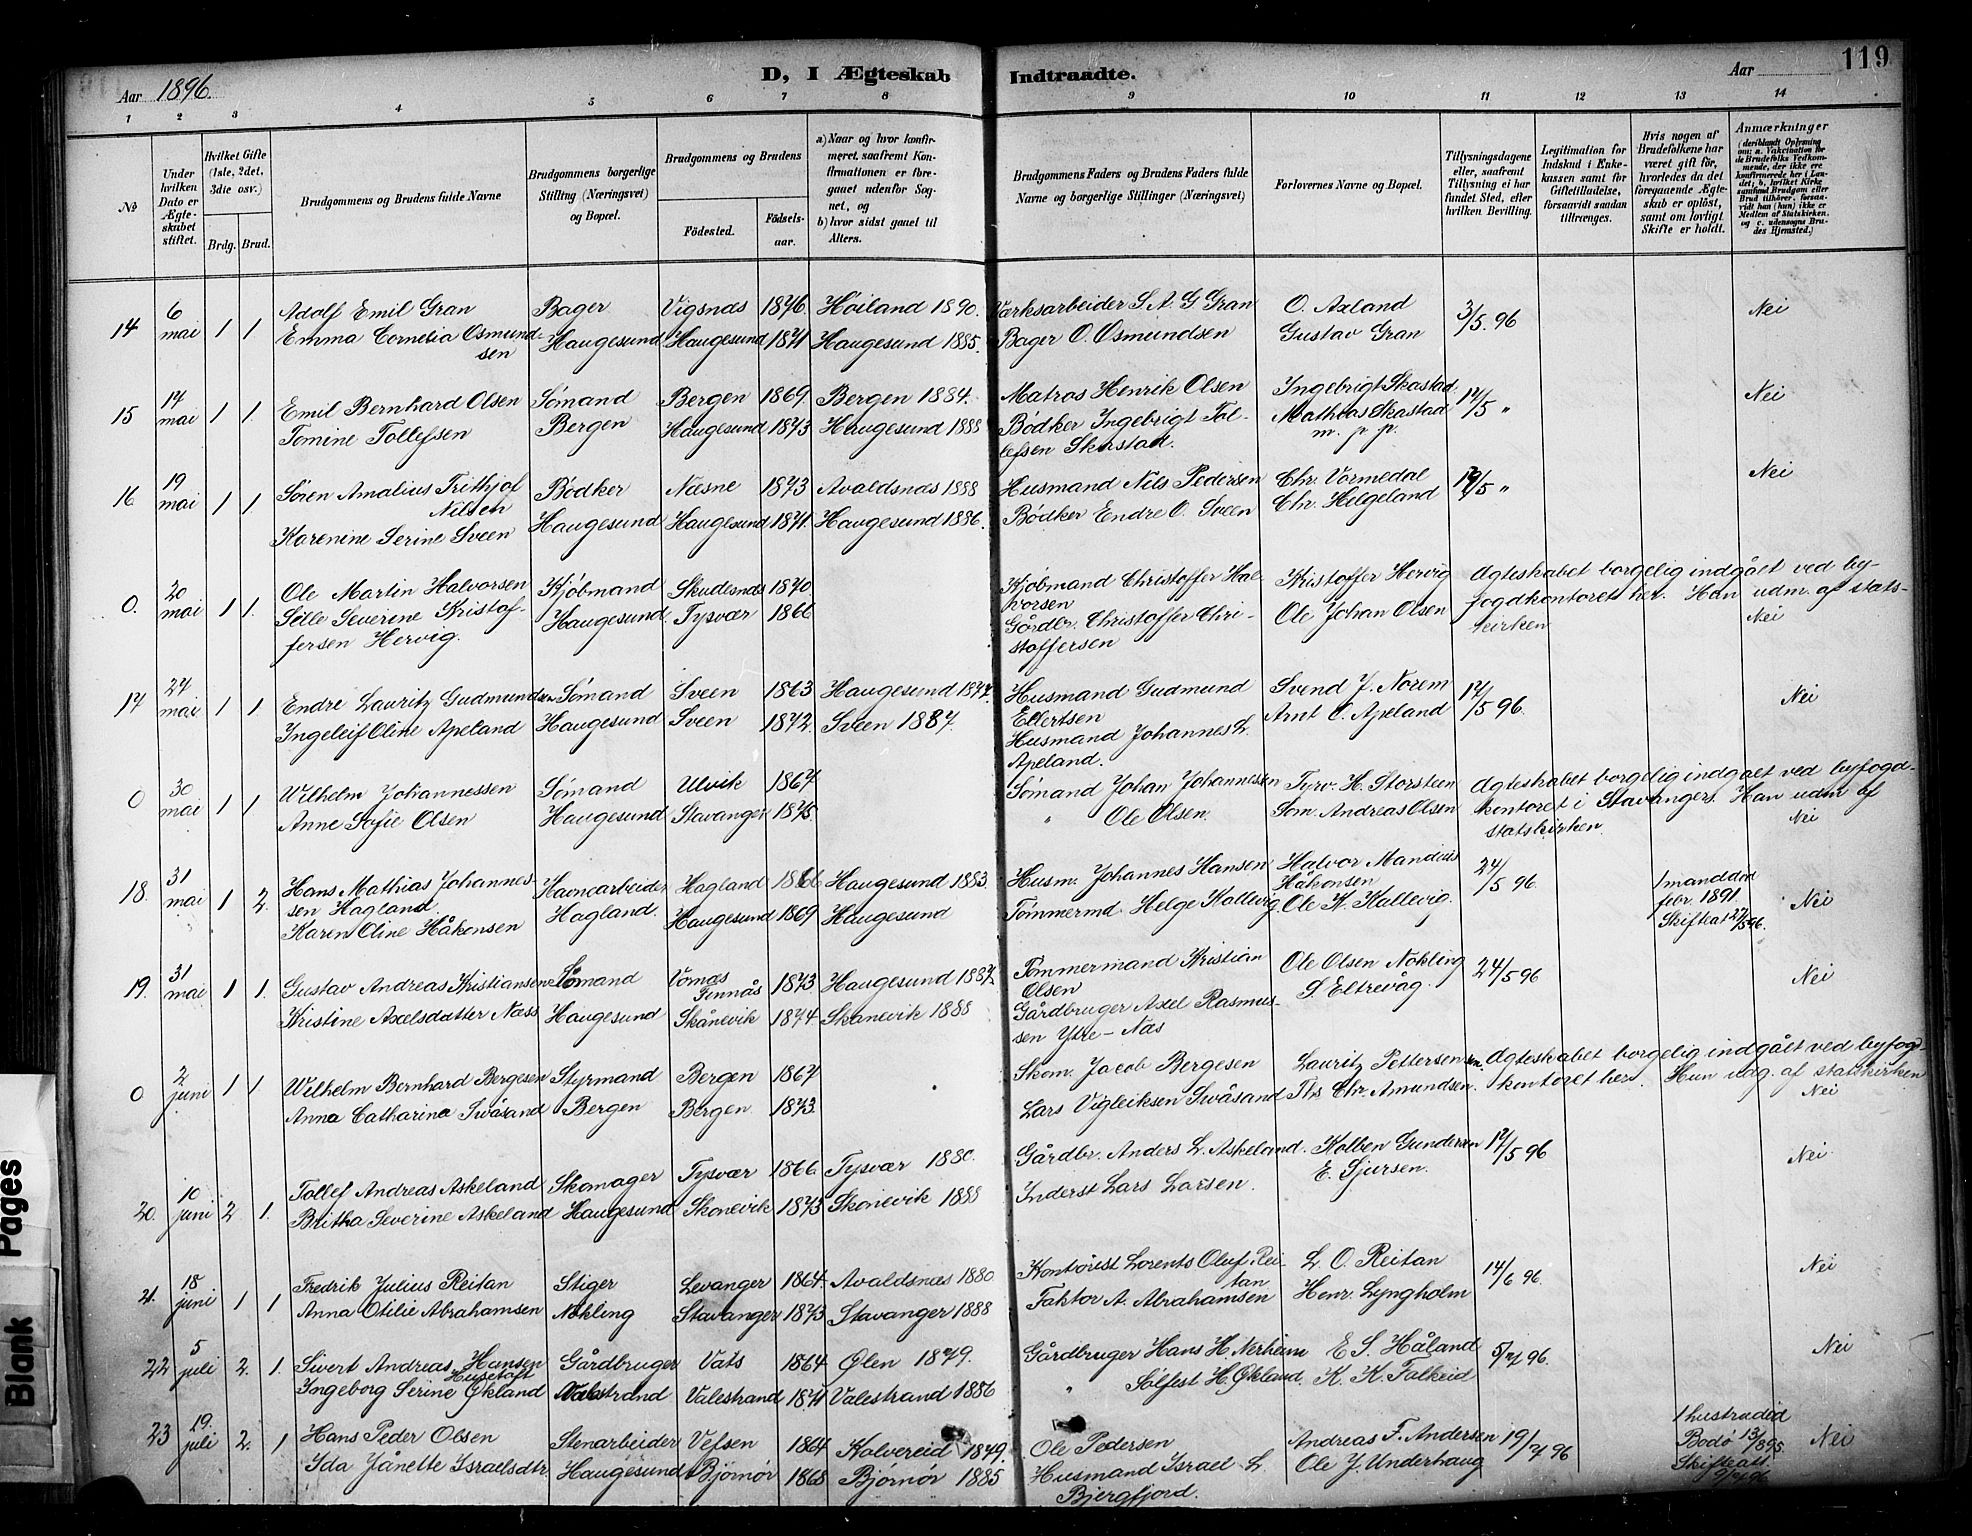 119
D, I Ægteskab Indtraadte.
Aar 1896. Aar
1 2 3 4 5 6 7 8 9 10 11 12 13 14
No
Under hvilken Dato er Ægteskabet stiftet.
Hvilket Gifte (1ste, 2det, 3die osv.)
Brdg. Brud.
Brudgommens og Brudens fulde Navne
Brudgommens borgerlige Stilling (Næringsvei) og Bopæl.
Brudgommens og Brudens
Födested. Födselsaar.
a) Naar og hvor konfirmeret, saafremt Konfirmationen er foregaaet udenfor Sognet, og
b) hvor sidst gaaet til Alters.
Brudgommens Faders og Brudens Faders fulde Navne og borgerlige Stillinger (Næringsvei)
Forlovernes Navne og Bopæl.
Tillysningsdagene eller, saafremt Tillysning ei har fundet Sted, efter hvilken Bevilling.
Legitimation for Indskud i Enkekassen samt for Giftetilladelse, forsaavidt saadan tiltrænges.
Hvis nogen af Brudefolkene har været gift för, hvorledes da det foregaaende Ægteskab er oplöst, samt om lovligt Skifte er holdt.
Anmærkninger
(deriblandt Oplysning om: a. Vakcination for de Brudefolks Vedkommende, der ikke ere konfirmerede her i Landet; b. hvilket Kirkesamfund Brudgom eller Brud tilhörer, forsaavidt han (hun) ikke er Medlem af Statskirken, og c. udensogns Brudes Hjemsted.)
14 6 mai 1 1. Adolf Emil Gran Bager Vigsnæs 1876. Høiland 1890. Værksarbeider S. A. G Gran O. Axland 3/5. 96 Nei
Emma Cornelia Osmundsen Haugesund Haugesund 1871 Haugesund 1885. Bager O. Osmundsen Gustav Gran
15 14 mai 1 1. Emil Bernhard Olsen Sømand Bergen 1869. Bergen 1884. Matros Henrik Olsen Ingebrigt Skastad 17/5 " Nei
Tomine Tollefsen Bergen Haugesund 1873 Haugesund 1888 Bødker Ingebrigt Tollefsen Skastad. Mathias Skastad
m. p. p.
16 19 mai 1 1 Søren Amalius Frithjof Nilsen Bødker Næsne 1873 Avaldsnæs 1888 Husmand Nils Pedersen Chr. Vormedal 17/5 " Nei
Karenine Serine Sveen Haugesund Haugesund 1871. Haugesund 1886. Bødker Endre O. Sveen Chr. Helgeland
0. 20 mai 1 1. Ole Martin Halvorsen Kjøbmand Skudesnæs 1870. Kjøbmand Christoffer Halvorsen Kristoffer Hervig Ægteskabet borgelig indgået ved byfogdkontoret her. Han udm. af statskirken Nei
Sille Severine Kristoffersen Hervig. Haugesund. Tysvær 1866 Gårdbr. Christoffer Christoffersen Ole Johan Olsen
17 27 mai 1 1. Endre Lauritz Gudmundsen Sømand Sveen 1863 Haugesund 1877. Husmand Gudmund Ellertsen Svend J. Norem 17/5 96. Nei
Ingeleif Oline Apeland Haugesund Sveen 1872. Sveen 1887. Husmand Johannes L. Apeland. Arnt O. Apeland
0 30 mai 1 1 Wilhelm Johannessen Sømand Ulvik 1867. Sømand Johan Johannesen Tyrv. H. Storsteen Ægteskabet borgelig indgået ved byfogdkontoret i Stavangers. Han udm af statskirken. Nei
Anne Sofie Olsen Haugesund Stavanger 1875. " Ole Olsen. Søm. Andreas Olsen
18. 31 mai 1 2. Hans Mathias Johannessen Hagland Havnearbeider Hagland 1866 Haugesund 1883. Husm. Johannes Hansen Halvor Mandius Håkonsen 24/5 96. 1 mand død febr. 1891. Skifteat 27/5 96. Nei
Karen Oline Håkonsen Hagland. Haugesund 1869 Haugesund Tømmermd Helge Kallevig. Ole K. Kallevig.
19. 31 mai 1 1. Gustav Andreas Kristiansen Sømand Vornæs Tennås 1873 Haugesund 1887. Tømmermand Kristian Olsen Ole Olsen Nøkling 24/5 96 Nei
Kristine Axelsdatter Næss Haugesund Skånevik 1874 Skånevik 1888 Gårdbruger Axel Rasmussen Ytre-Næs S. Eltrevåg.
0 2 juni 1 1. Wilhelm Bernhard Bergesen Styrmand Bergen 1867 Skom. Jacob Bergesen Lauritz Pettersen Ægteskabet borgelig indgået ved byfogdkontoret her. Hun udg. af statskirken Nei
Anna Catharina Svåsand Bergen Bergen. 1873. Lars Vigleiksen Svåsand Ths Chr. Amundsen.
20. 10 juni 2. 1. Tollef Andreas Askeland Skomager Tysvær 1866. Tysvær 1880. Gårdbr. Anders L. Askeland. Kolben Gundersen 17/5 96 Nei.
Britha Severine Askeland Haugesund Skonevik 1873 Skonevik 1888 Inderst Lars Larsen. E. Sjursen.
21. 18 juni 1 1 Fredrik Julius Reitan Stiger Levanger 1864. Avaldsnæs 1880. Kontorist Lorents Oluf Reitan L. O. Reitan 14/6 96. Nei
Anna Otilie Abrahamsen Nøkling Stavanger 1873 Stavanger 1888 Faktor A. Abrahamsen Henr. Lyngholm
22 5 juli 2. 1. Sivert Andreas Hansen Husetoft Gårdbruger Vats 1864 Ølen 1879. Gårdbruger Hans H. Nerheim E. S. Håland 5/7 96. Nei
Ingeborg Serine Økland Valestrand Valestrand 1871 Valestrand 1886 " Sølfest H. Økland. K. K. Falkeid
23 19. juli 2. 1 Hans Peder Olsen Stenarbeider Vefsen 1864 Kalvereid 1879. Ole Pedersen Andreas F. Andersen 19/7 96 1 hustrudød Bodø 13/8 95. Skifteatt. 9/7 96. Nei
Ida Jånette Israelsdtr Haugesund Bjørnør 1868 Bjørnør 1885 Husmand Israel L Bjergfjord. Ole J. Underhaug
Blank Pages